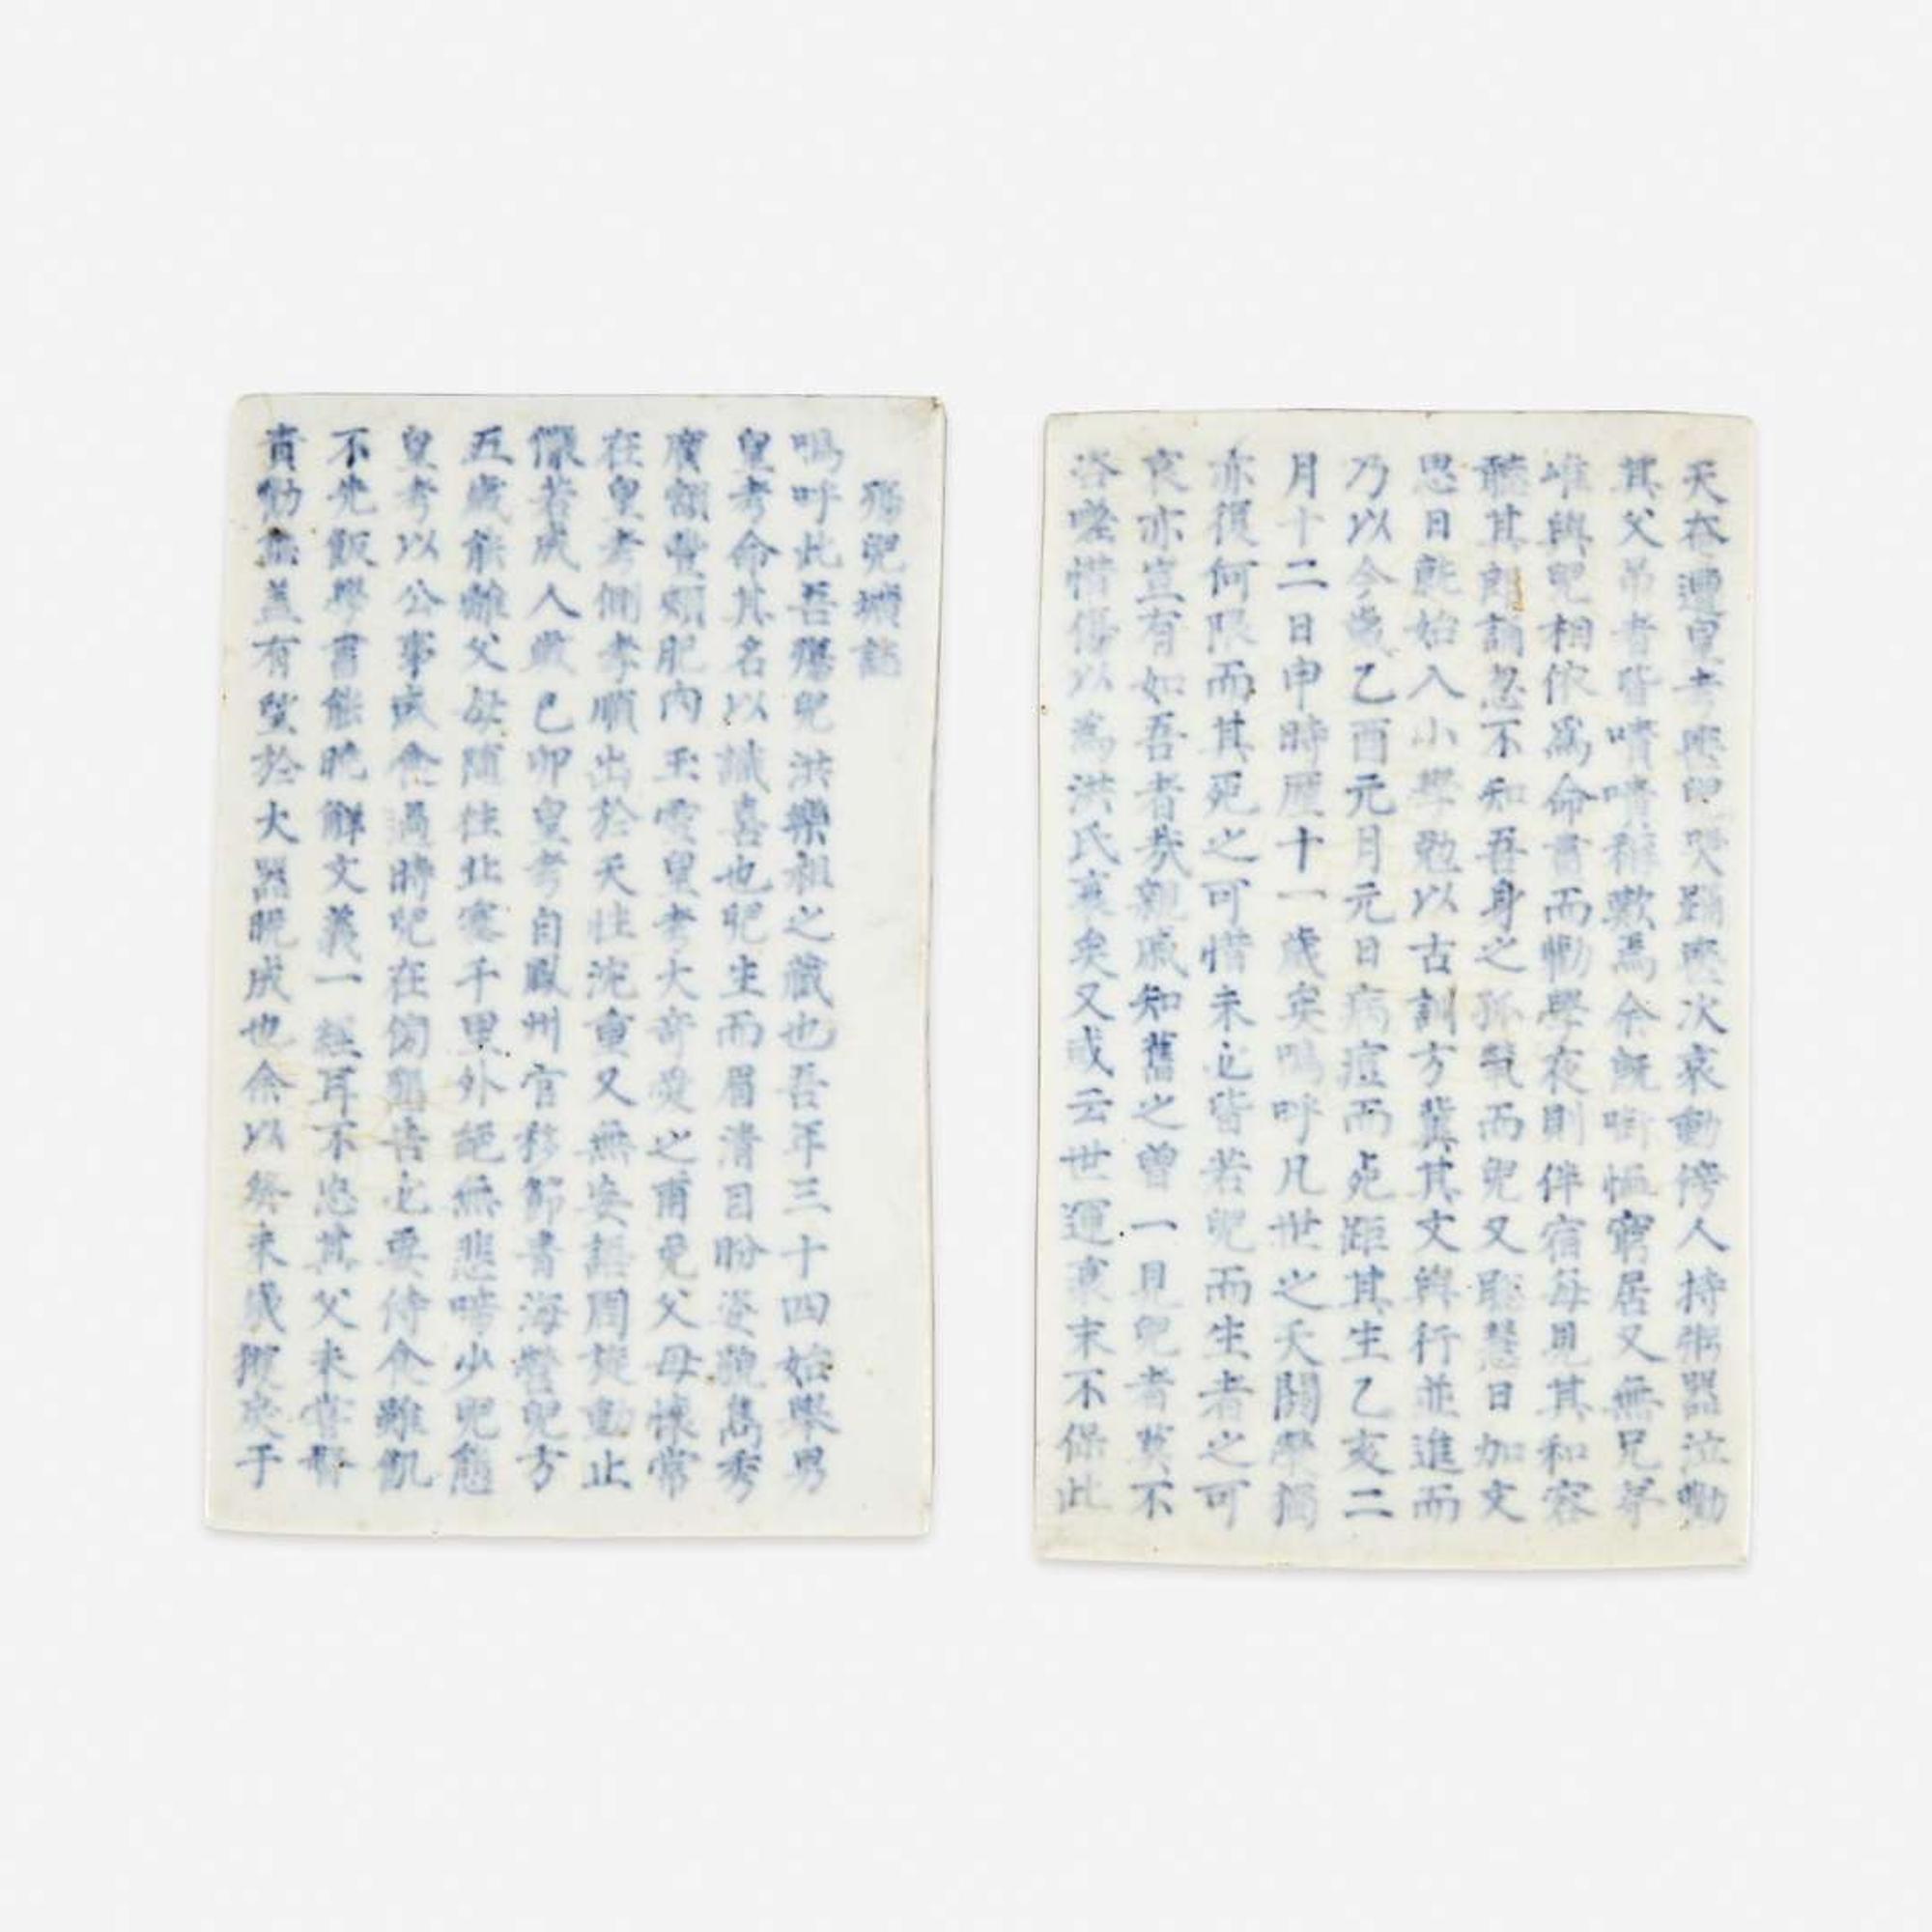 殤兒壙誌
嗚呼此吾殤兒洪樂祖之藏也吾年三十四始擧男
皇考命其名以識喜也兒生而眉清目盼姿貌雋秀
廣額豊頰肥肉玉雪皇考大奇愛之甫免父母懷常
在皇考側孝順出於天性沈重又無妄語周旋動止
儼若成人歲己卯皇考自鳳州官移節青海營兒方
五歲能離父母隨往北塞千里外絕無悲啼少兒態
皇考以公事或食過時兒在傍輒告之要侍食雖飢
不先飯學書能晩解文義一經耳不忘其父未嘗督
責勸無盖有望於大器晩成也余以癸未歲獲戾于
天奄遭皇考 兒哭踊 次哀動傍人持粥器泣勸
其父吊者皆嘖嘖稱歎焉余旣 恤窮居又無兄弟
唯與兒相依爲命書而勸學夜則伴宿每見其和容
聽其朗誦忽不知吾身之孤煢而兒又聰慧日加文
思日能始入小學勉以古訓方冀其文與行並進而
乃以今歲乙酉元月元日病痘而死距其生乙亥二
月十二日申時歷十一歲矣嗚呼凡世之夭閼學獨
亦復何限而其死之可惜未必皆若兒而生者之可
哀亦豈有如吾者哉親戚知舊之曾一見兒者莫不
咨嗟惜傷以爲洪氏衰矣又或云世運衰末不保此